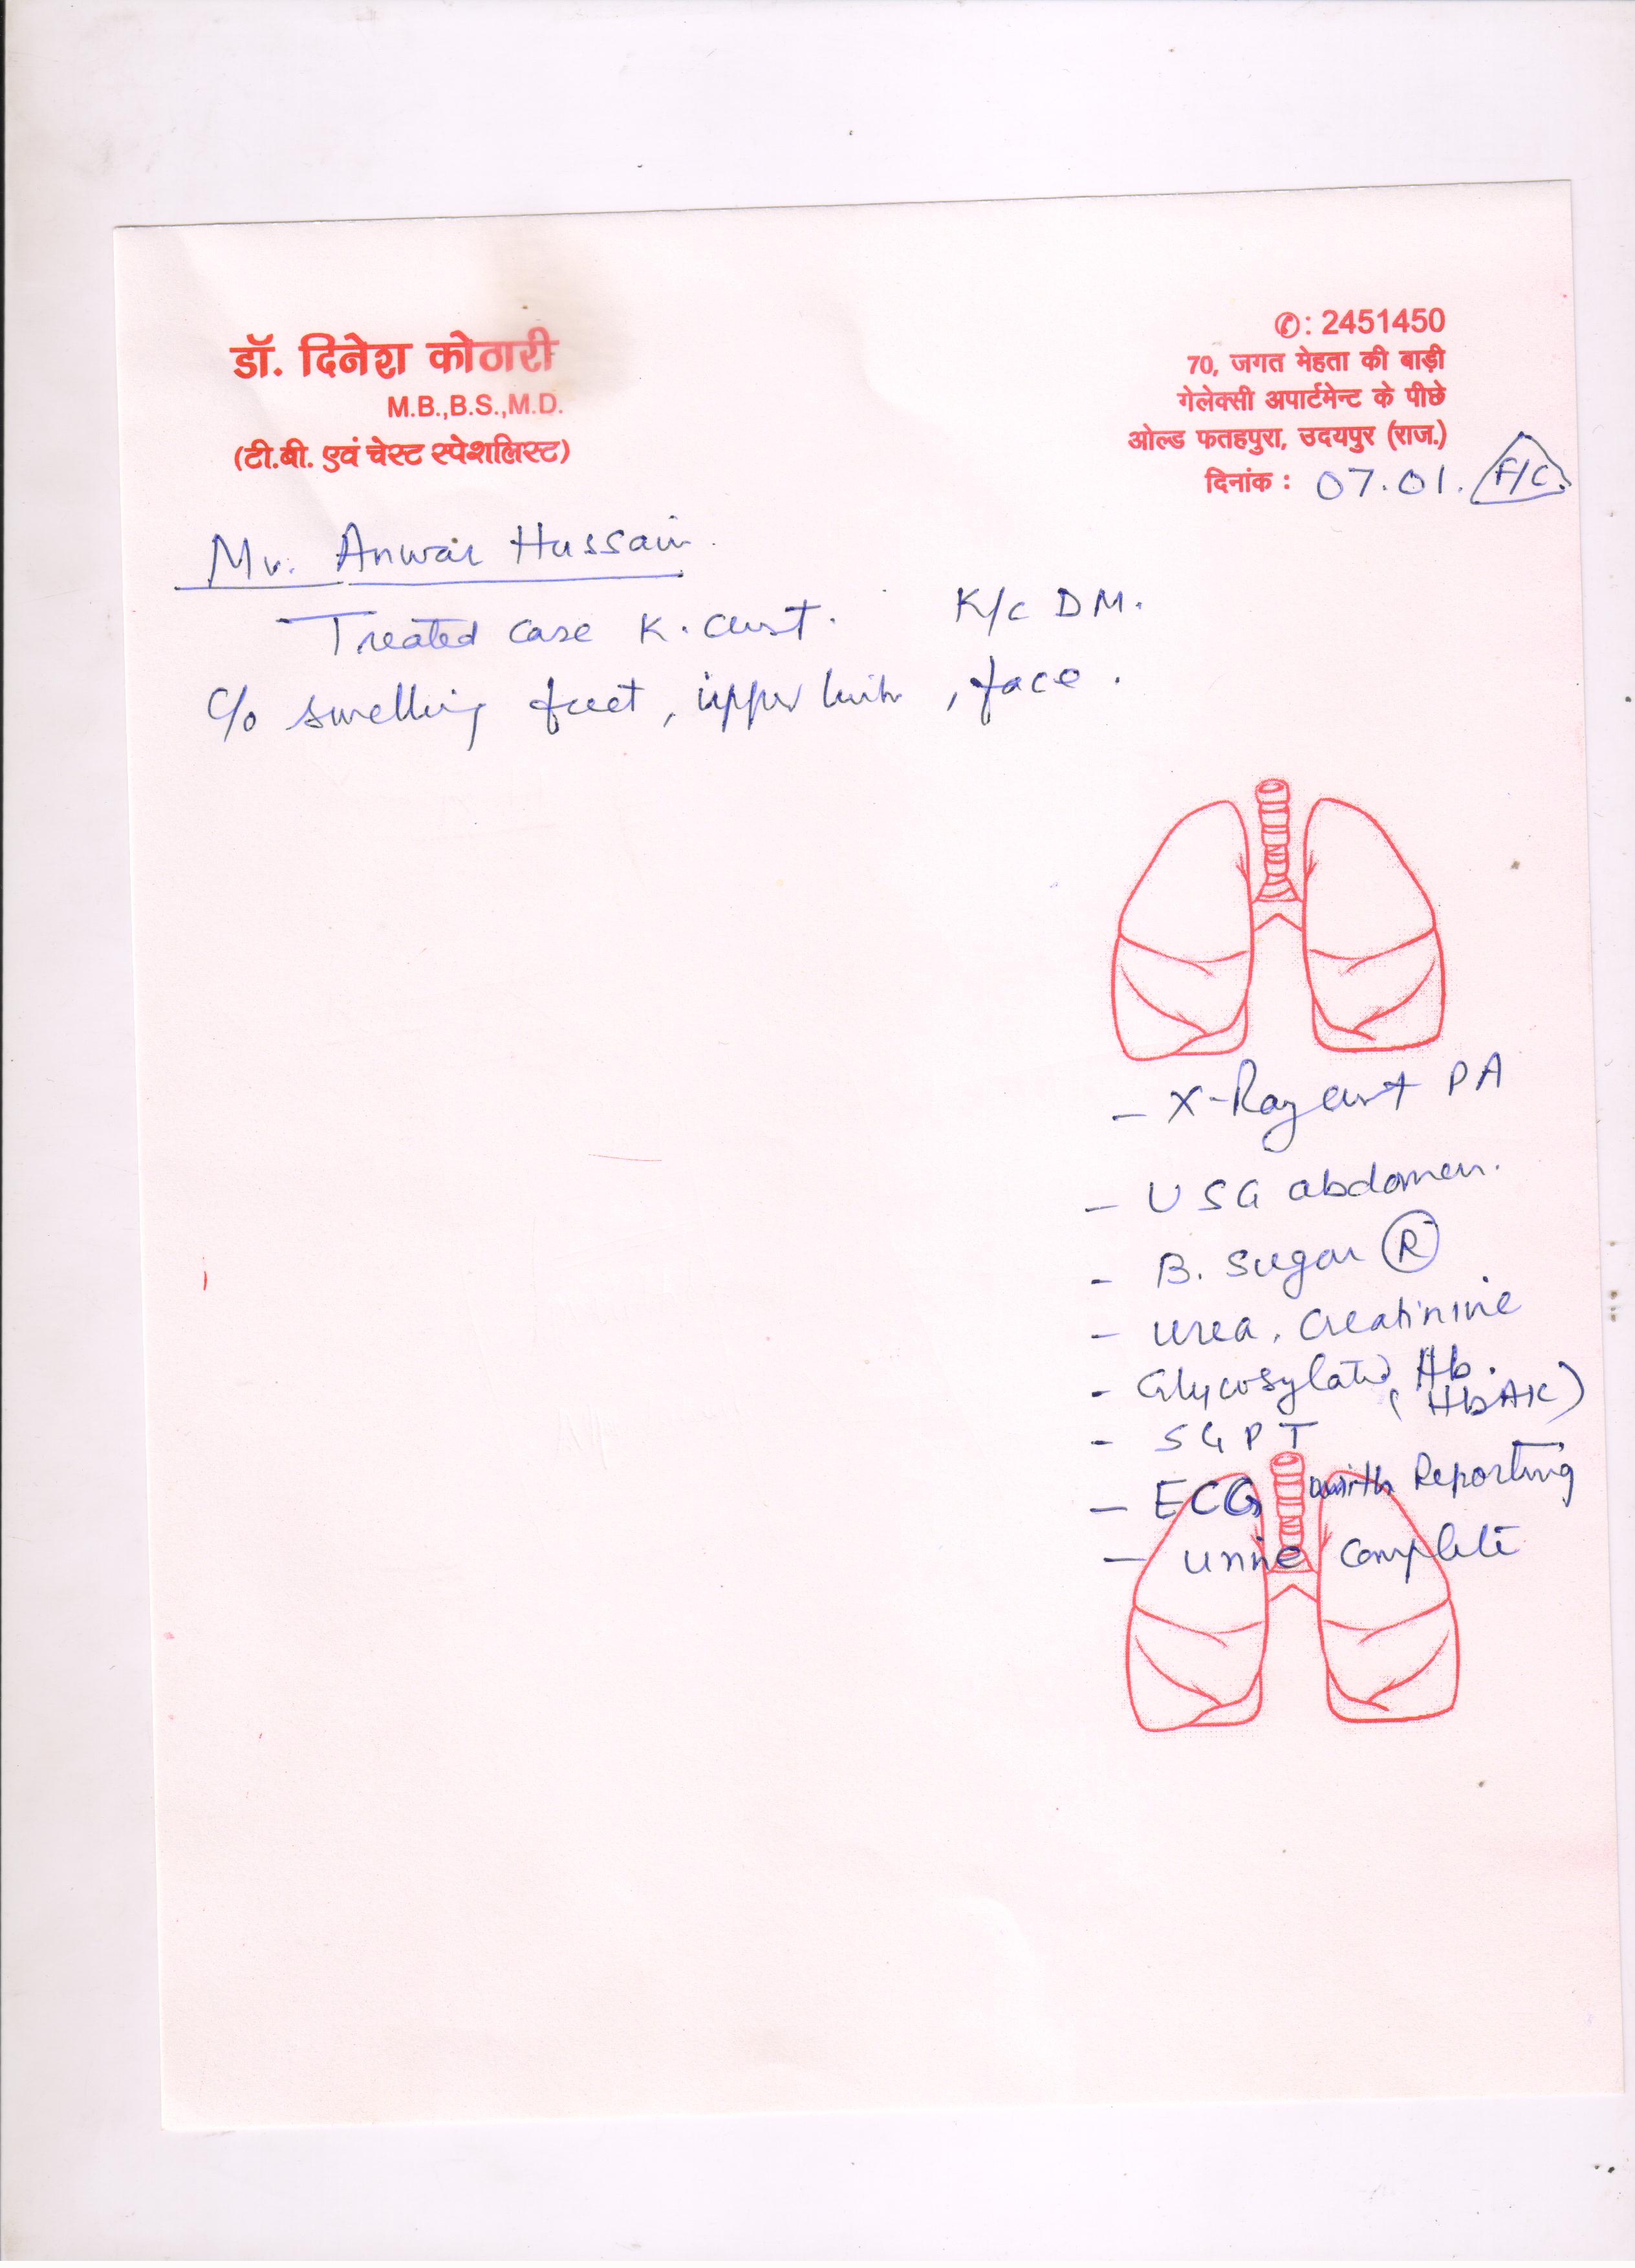 डॉ. दिनेश कोठारी
M.B.,B.S.,M.D.
(टी.बी. एवं चेस्ट स्पेशलिस्ट)
✆: 2451450
70, जगत मेहता की बाड़ी
गेलेक्सी अपार्टमेन्ट के पीछे
ओल्ड फतहपुरा, उदयपुर (राज.)
दिनांक : 07.01. F/C
Mr. Anwar Hussain.
Treated case K. K/c DM.
C/o swelling feet, upper , face.
- X-Ray PA
- USG abdomen.
- B. Sugar R
- Urea, Creatinine
- Glycosylated Hb.
(HbA1c)
- SGPT
- ECG with Reporting
- Urine Complete